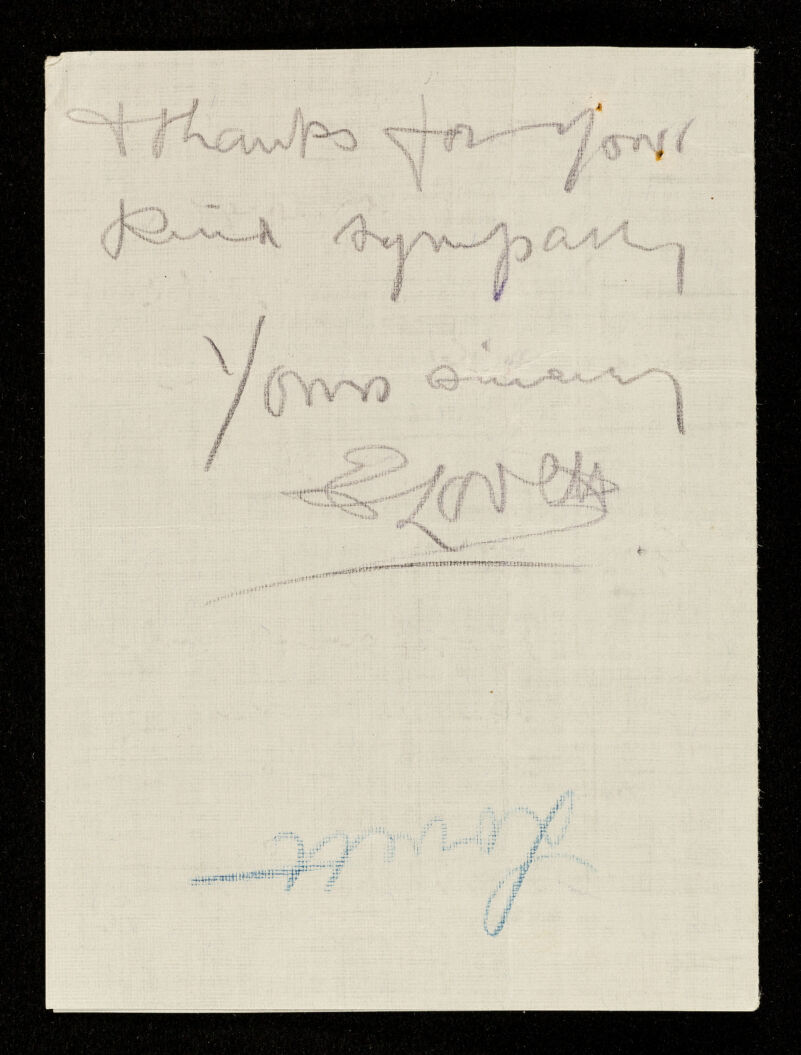 thanks for your
kind sympathy
Yours sincerely
E Lovett
Lovett